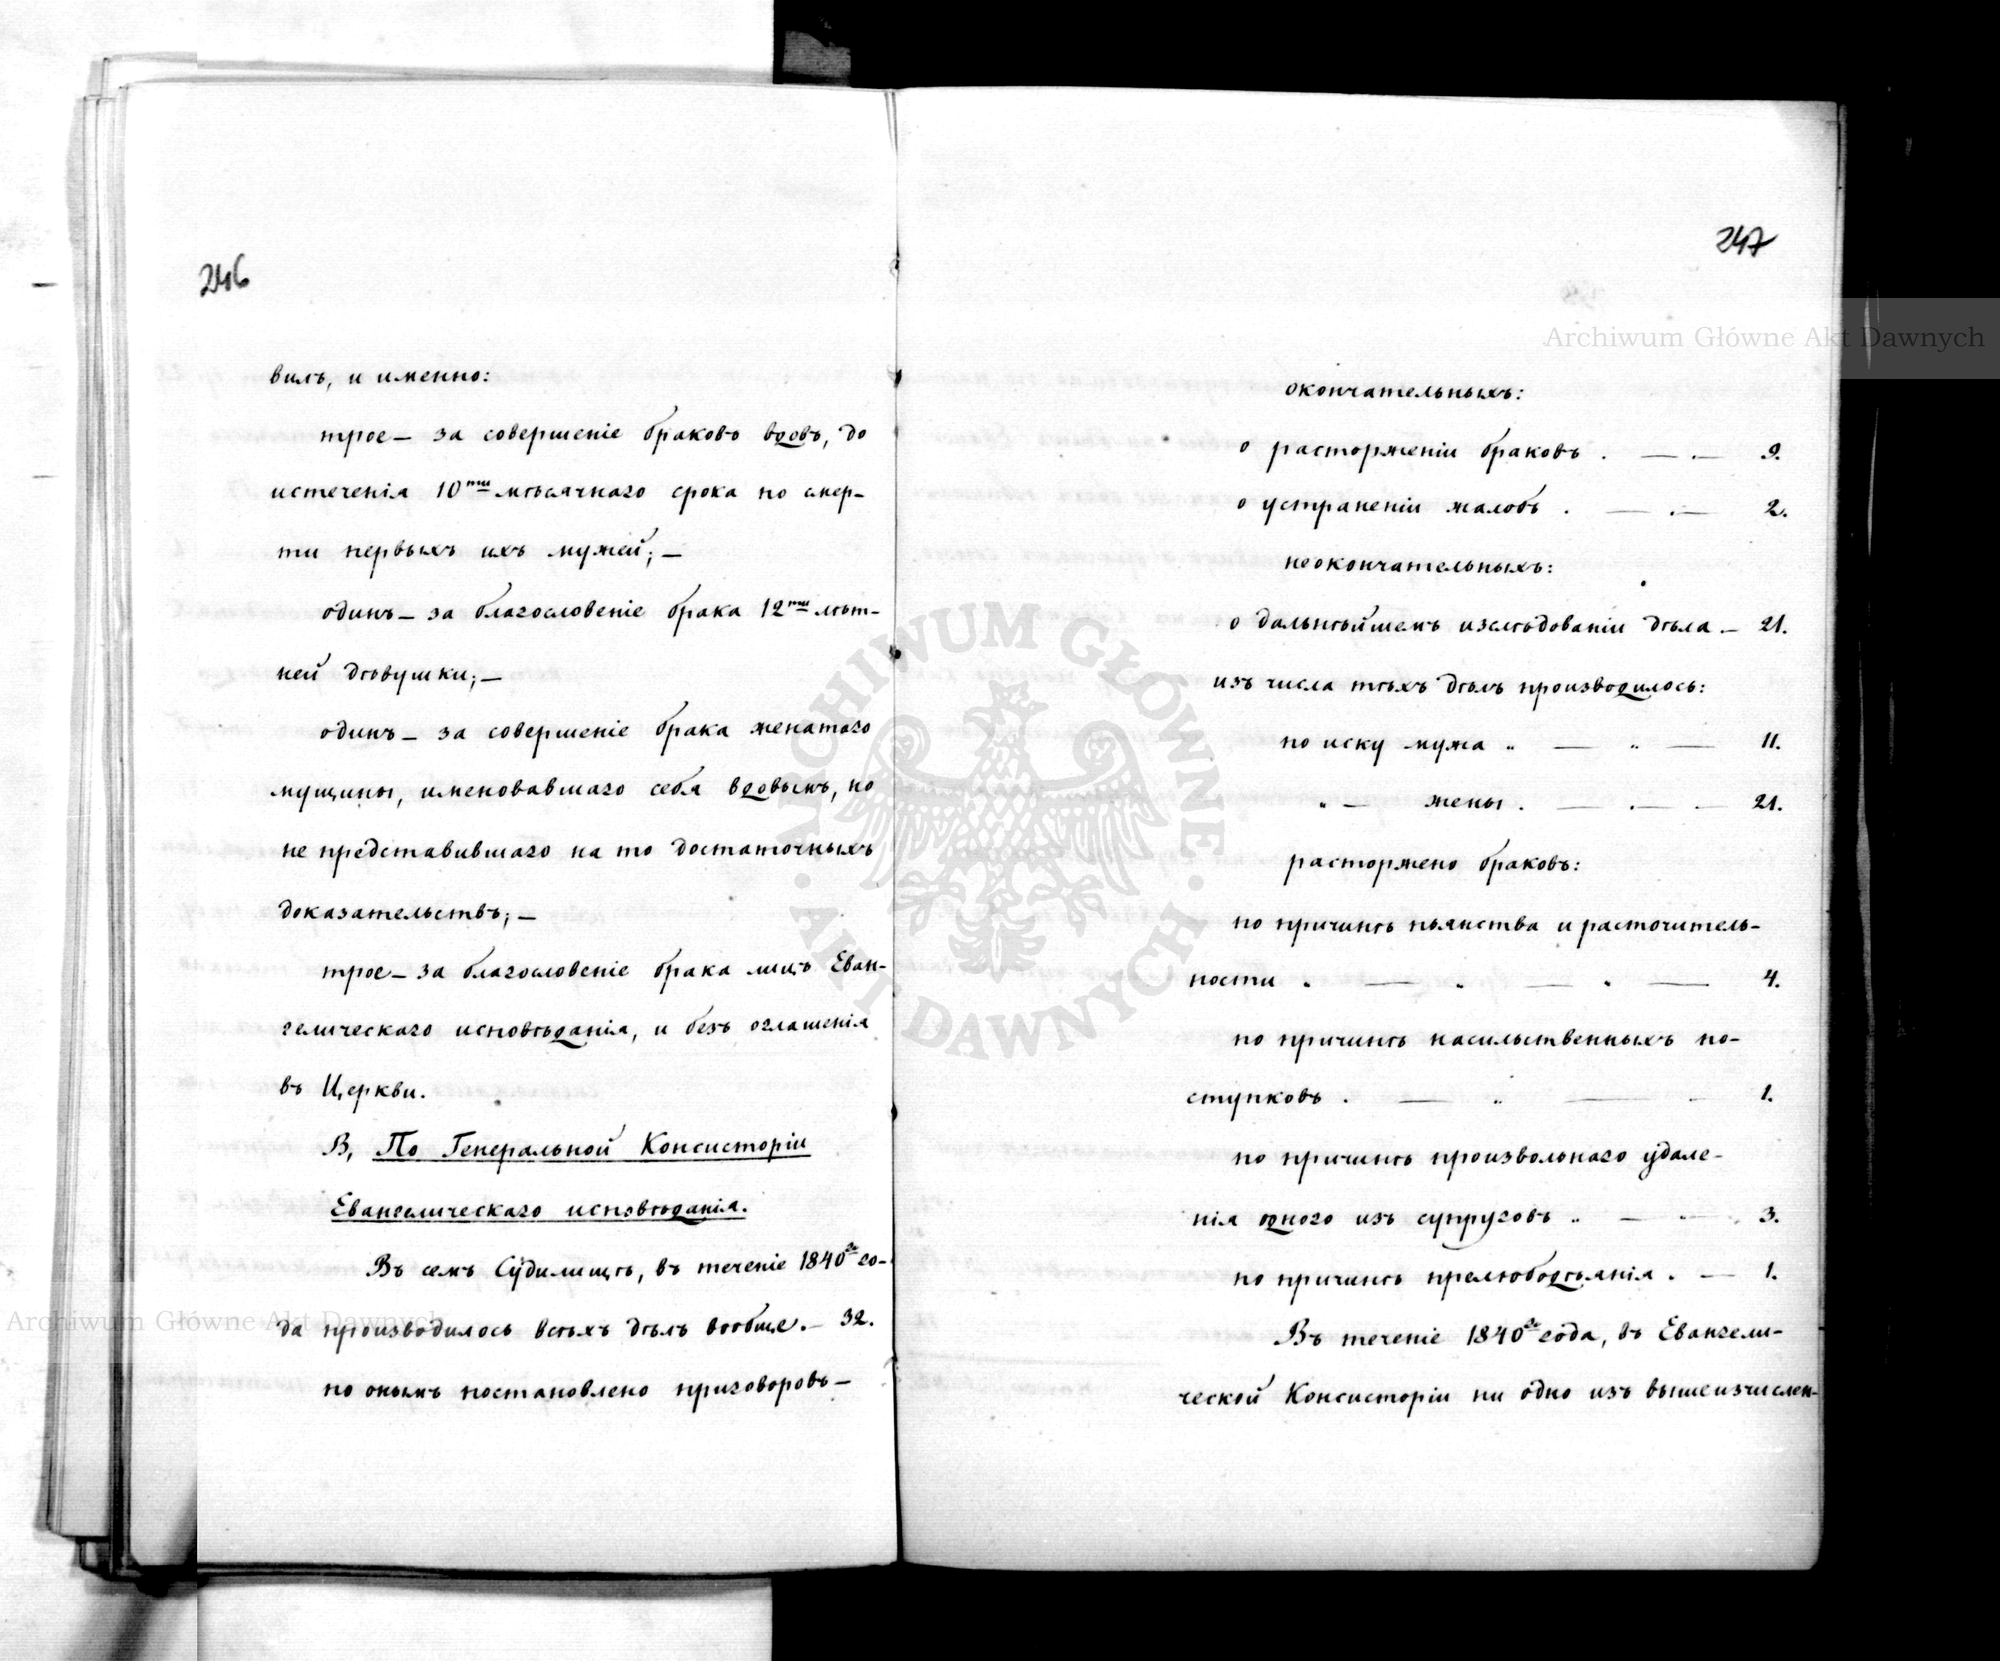 246
вилъ, и именно:
трое — за совершеніе браковъ вдовъ, до
истеченія 10ти мѣсячнаго срока по смер-
ти первыхъ ихъ мужей; —
одинъ — за благословеніе брака 12ти лѣт-
ней дѣвушки; —
одинъ — за совершеніе брака женатаго
мущины, именовавшаго себя вдовымъ, но
не представившаго на то достаточныхъ
доказательствъ; —
трое — за благословеніе брака лицъ Еван-
гелическаго исповѣданія, и безъ оглашенія
въ Церкви.
В, По Генеральной Консисторіи
Евангелическаго исповѣданія.
Въ семъ Судилищѣ, въ теченіе 1840го го-
да производилось всѣхъ дѣлъ вообще. — 32.
по онымъ постановлено приговоровъ —
247
окончательныхъ:
о расторженіи браковъ . — . — 9.
о устраненіи жалобъ . — . — 2.
неокончательныхъ:
о дальнѣйшемъ изслѣдованіи дѣла . — 21.
изъ числа тѣхъ дѣлъ производилось:
по иску мужа „ — „ — 11.
„ — жены . — . — 21.
расторжено браковъ:
по причинѣ пьянства и расточитель-
ности . — . — . — 4.
по причинѣ насильственныхъ по-
ступковъ . — „ — 1.
по причинѣ произвольнаго удале-
нія одного изъ супруговъ „ — . — 3.
по причинѣ прелюбодѣянія . — 1.
Въ теченіе 1840го года, въ Евангели-
ческой Консисторіи ни одно изъ вышеизчислен-
Archiwum Główne Akt Dawnych
Archiwum Główne Akt Dawnych
ARCHIWUM GŁÓWNE AKT DAWNYCH